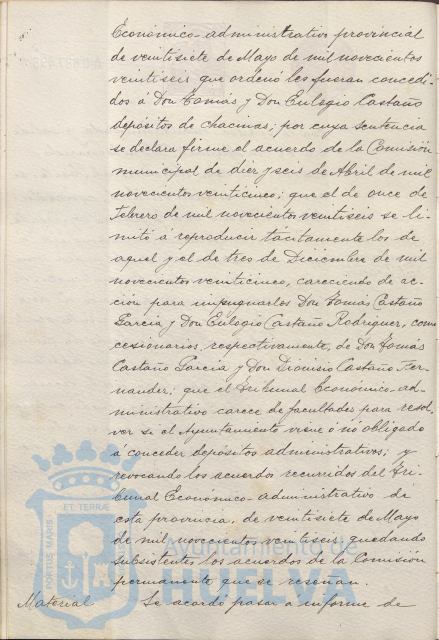 Económico-administrativo provincial
de veintisiete de Mayo de mil novecientos
veintiseis que ordenó les fueran concedi-
dos á Don Tomás y Don Eulogio Castaño
depósitos de chacinas; por cuya sentencia
se declara firme el acuerdo de la Comisión
municipal de diez y seis de Abril de mil
novecientos veinticinco; que el de once de
Febrero de mil novecientos veintiseis se li-
mitó á reproducir tácitamente los de
aquel y el de tres de Diciembre de mil
novecientos veinticinco, careciendo de ac-
ción para impugnarlos Don Tomás Castaño
Garcia y Don Eulogio Castaño Rodriguez, como
cesionarios, respectivamente, de Don Tomás
Castaño Garcia y Don Dionisio Castaño Fer-
nandez; que el Tribunal Económico-ad-
ministrativo carece de facultades para resol-
ver si el Ayuntamiento viene ó nó obligado
á conceder depósitos administrativos; y
revocando los acuerdos recurridos del Tri-
bunal Económico-administrativo de
esta provincia, de veintisiete de Mayo
de mil novecientos veintiseis, quedando
subsistentes los acuerdos de la Comisión
permanente que se reseñan.
Material Se acordó pasar á informe de
PORTUS MARIS ET TERRÆ
Ayuntamiento de
HUELVA